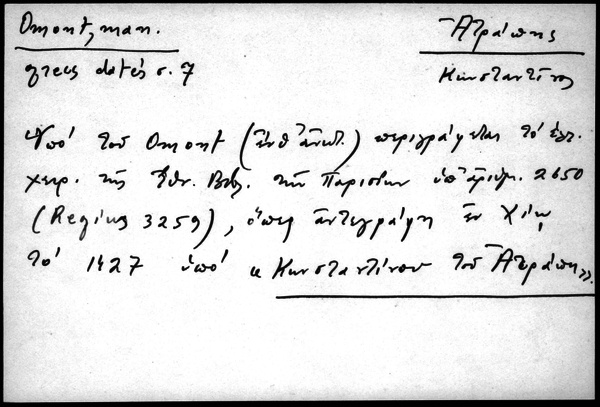 Omont, man.
grecs datés σ. 7
Ἀτράπης
Κωνσταντῖνος
Ὑπό τοῦ Omont (ἔνθ' ἀνωτ.) περιγράφεται τό ἑλλ.
χειρ. τῆς Ἐθν. Βιβλ. τῶν Παρισίων ὑπ' ἀριθμ. 2650
(Regius 3259), ὅπερ ἀντεγράφη ἐν Χίῳ
τό 1427 ὑπό « Κωνσταντίνου τοῦ Ἀτράπη».